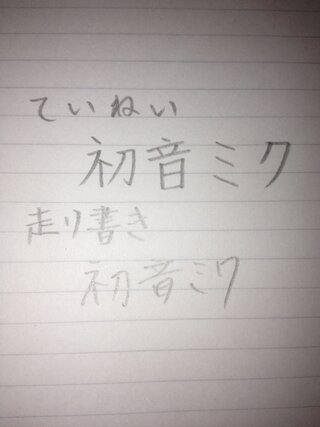 ていねい
初音ミク
走り書き
初音ミク